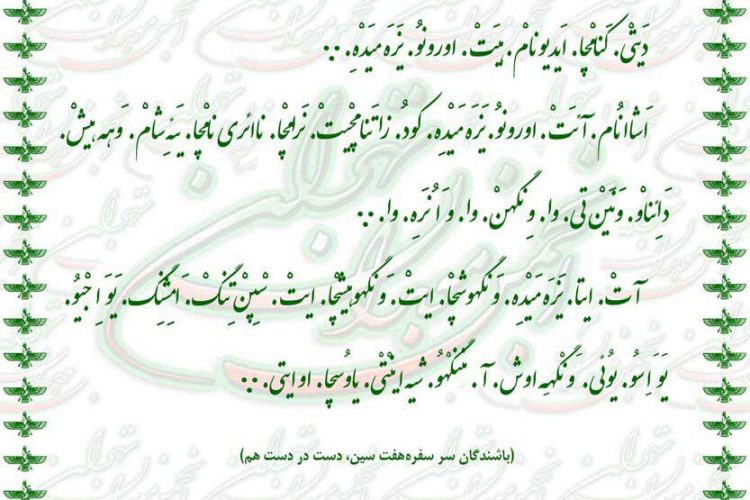 دَیتی. کَنامْچا. اَیدیونامْ. هیَتْ. اورونُو. یَزَه میدَهِ. ..
اَشااُنام. آئَتْ. اورونُو. یَزَه مَیدِه. کودُ. زاتَنامْچیتْ. نَرامْچا. نااِئری نامْچا. یَئِه شامْ. وَهه هیشْ.
دَاِئناوُ. وَنَیْن تی. وا. وِنگهِنْ. وا. وَ اُنَرَه. وا. ..
آتْ. ایتا. یَزَه مَیدِه. وَنگهوشچْا. ایتْ. وَنگهوهیشچْا. ایتْ. سْپِنْ تِنگْ. اَمِشِنگ. یَوَ اِجْیُو.
یَوَ اِسُو. یُوئی. وَنگْهِه اوش. آ. مَنَنْگهُو. شیه اینْتی. یاوُسچا. اوایتی. ..
(باشندگان سر سفره‌هفت سین، دست در دست هم)
انجمن موبدان تهران